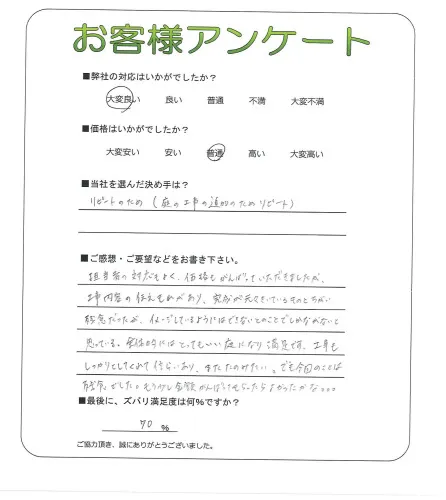 お客様アンケート
■弊社の対応はいかがでしたか?
大変良い 良い 普通 不満 大変不満
■価格はいかがでしたか?
大変安い 安い 普通 高い 大変高い
■当社を選んだ決め手は?
リピートのため(庭の工事の追加のためリピート)
■ご感想・ご要望などをお書き下さい。
担当者の対応もよく、価格もがんばっていただきましたが、
工事内容の伝えもれがあり、完成が元々きいているものとちがい
残念だったが、イメージしているようにはできないとのことでしかながないと
思っている。全体的にはとってもいい庭になり満足です。工事も
しっかりとしてくれて信らいあり、またたのみたい。でも今回のことは
残念でした。もう少し金額がんばってもらったらよかったかな。。。
■最後に、ズバリ満足度は何%ですか?
70 %
ご協力頂き、誠にありがとうございました。